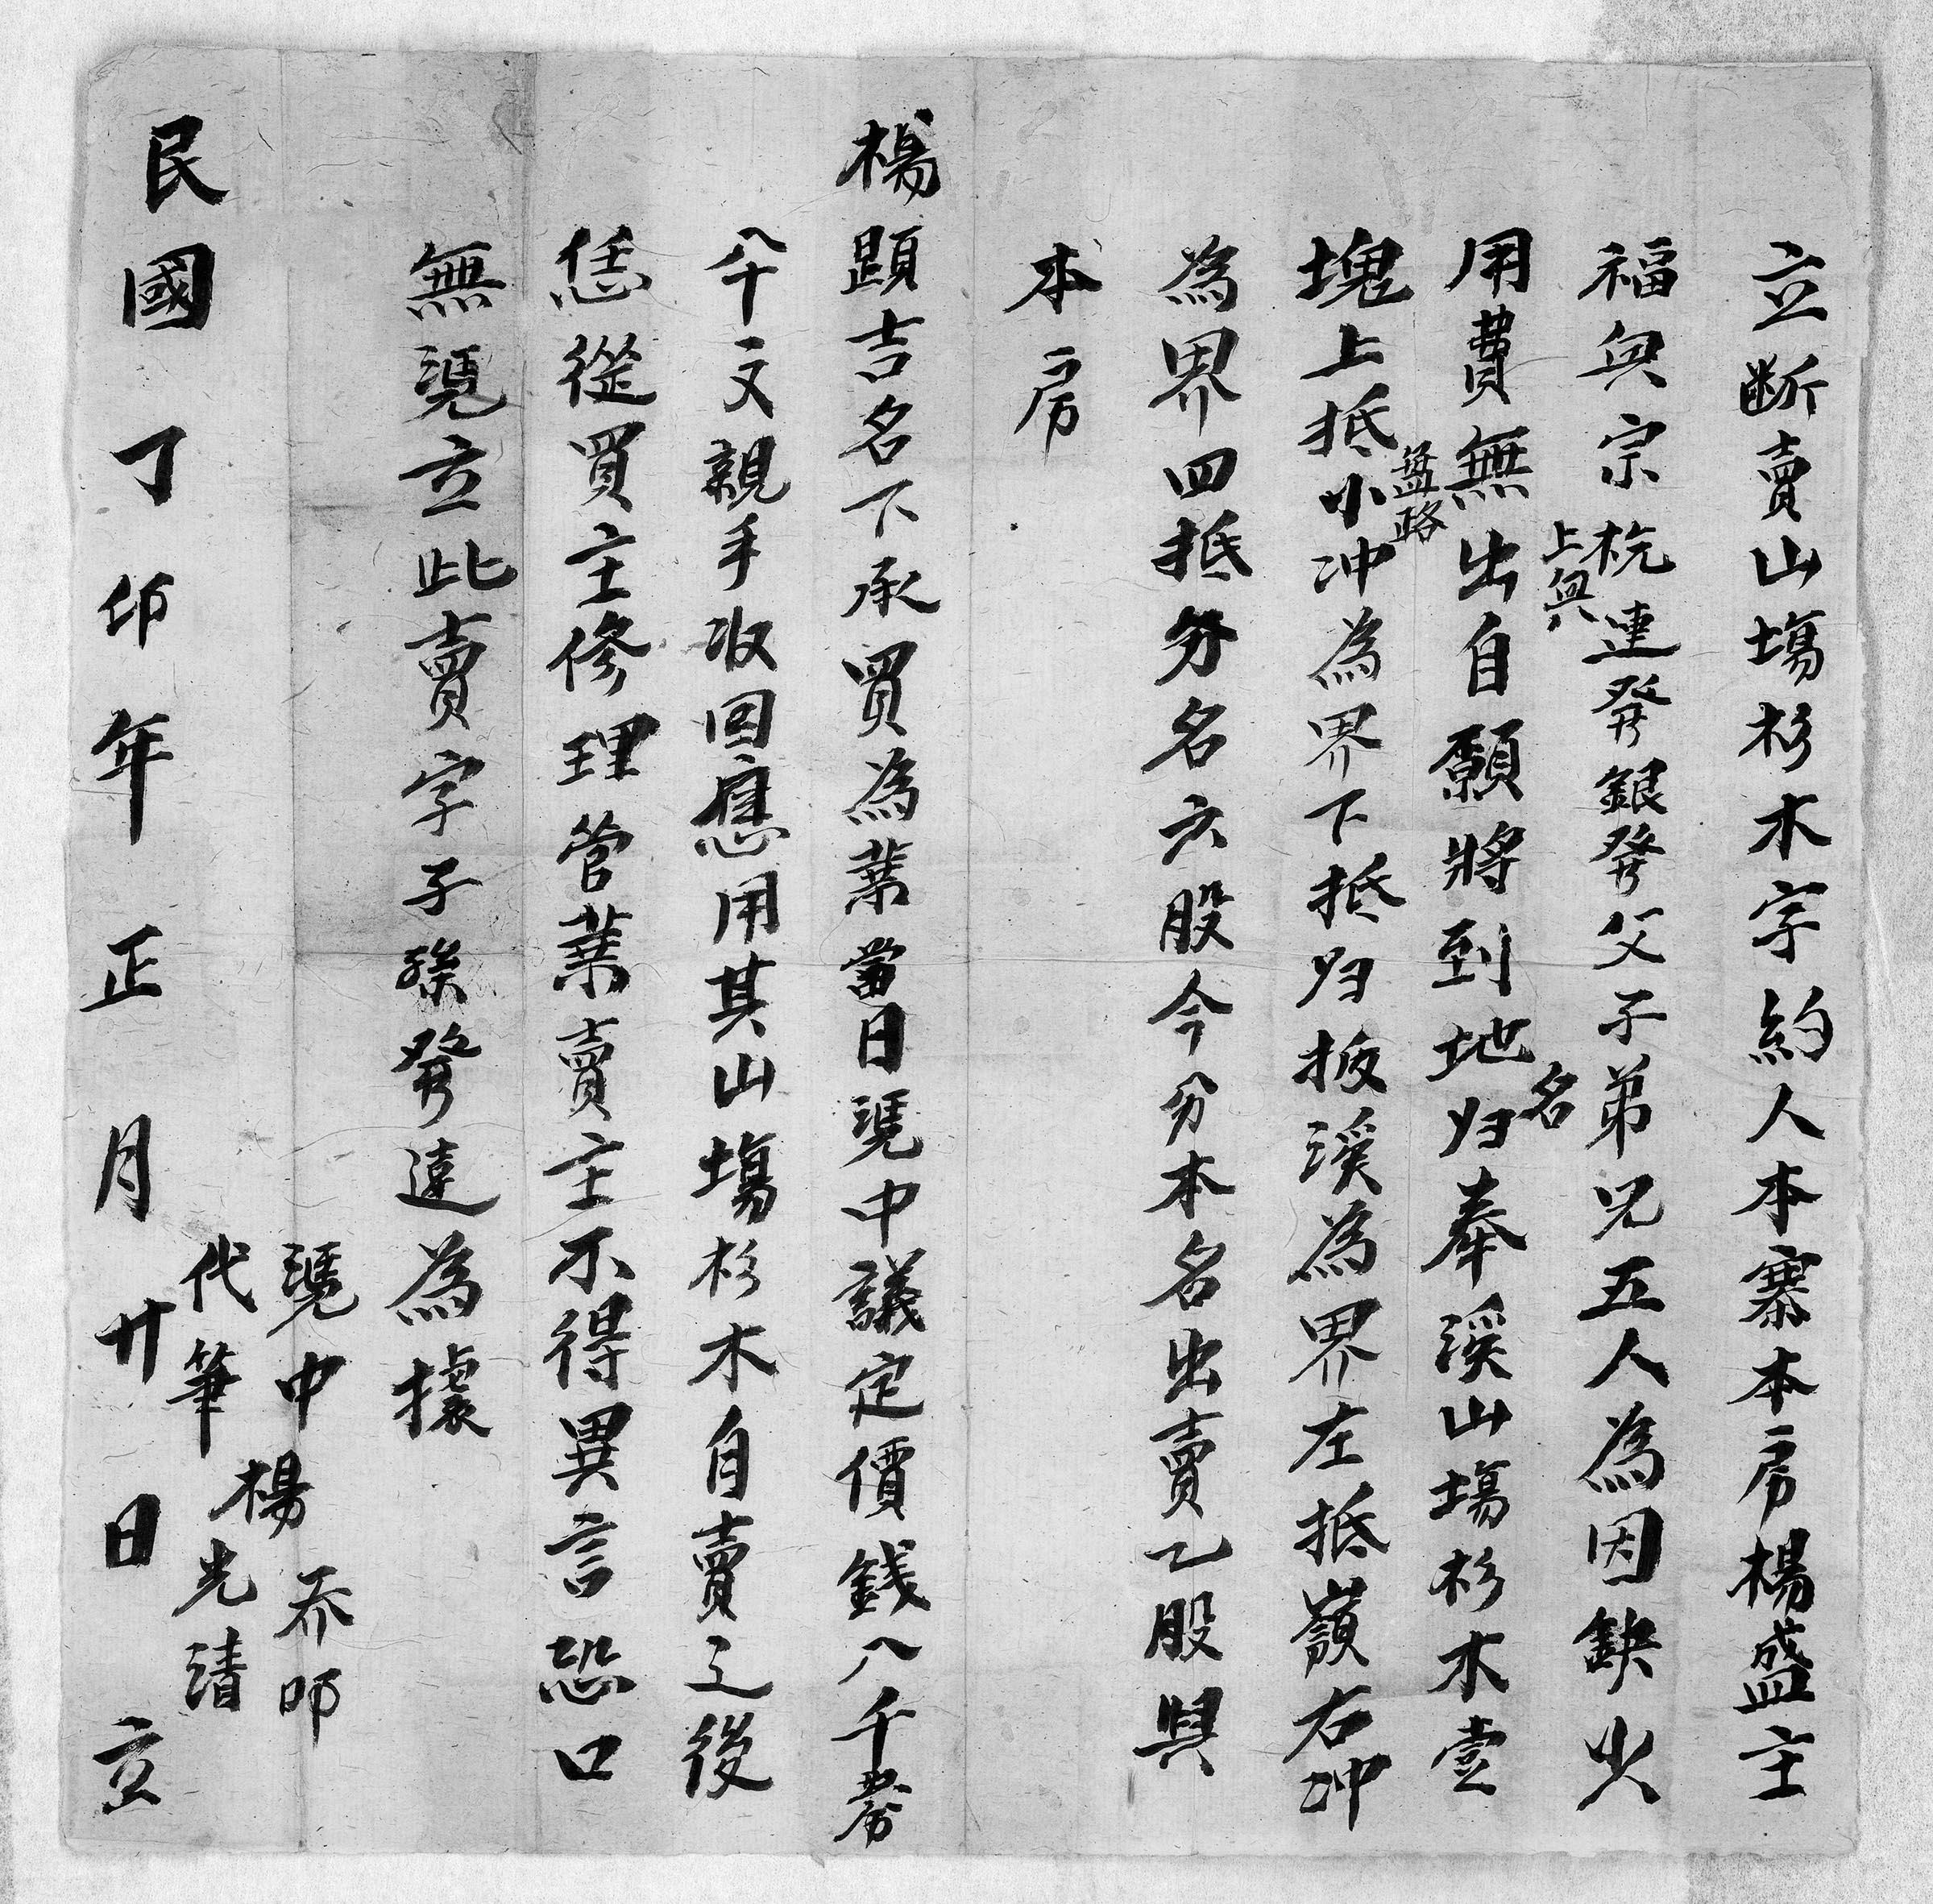 立断賣山塲杉木字約人本寨本房楊盛主
福與宗杭連發銀發父子弟兄五人為因缺少
上與
名
用費無出自願將到地归奉溪山塲杉木壹
盤路
塊上抵小冲為界下抵归扳溪為界左抵嶺右冲
為界四抵分名六股今分本名出賣乙股與
本房
楊題吉名下承買為業當日憑中議定價錢八千
八千文親手收回應用其山塲杉木自賣之後
恁從買主修理管業賣主不得異言恐口
無憑立此賣字子孫發達為據
憑中
楊
代筆 光清
民國丁卯年正月廿日立